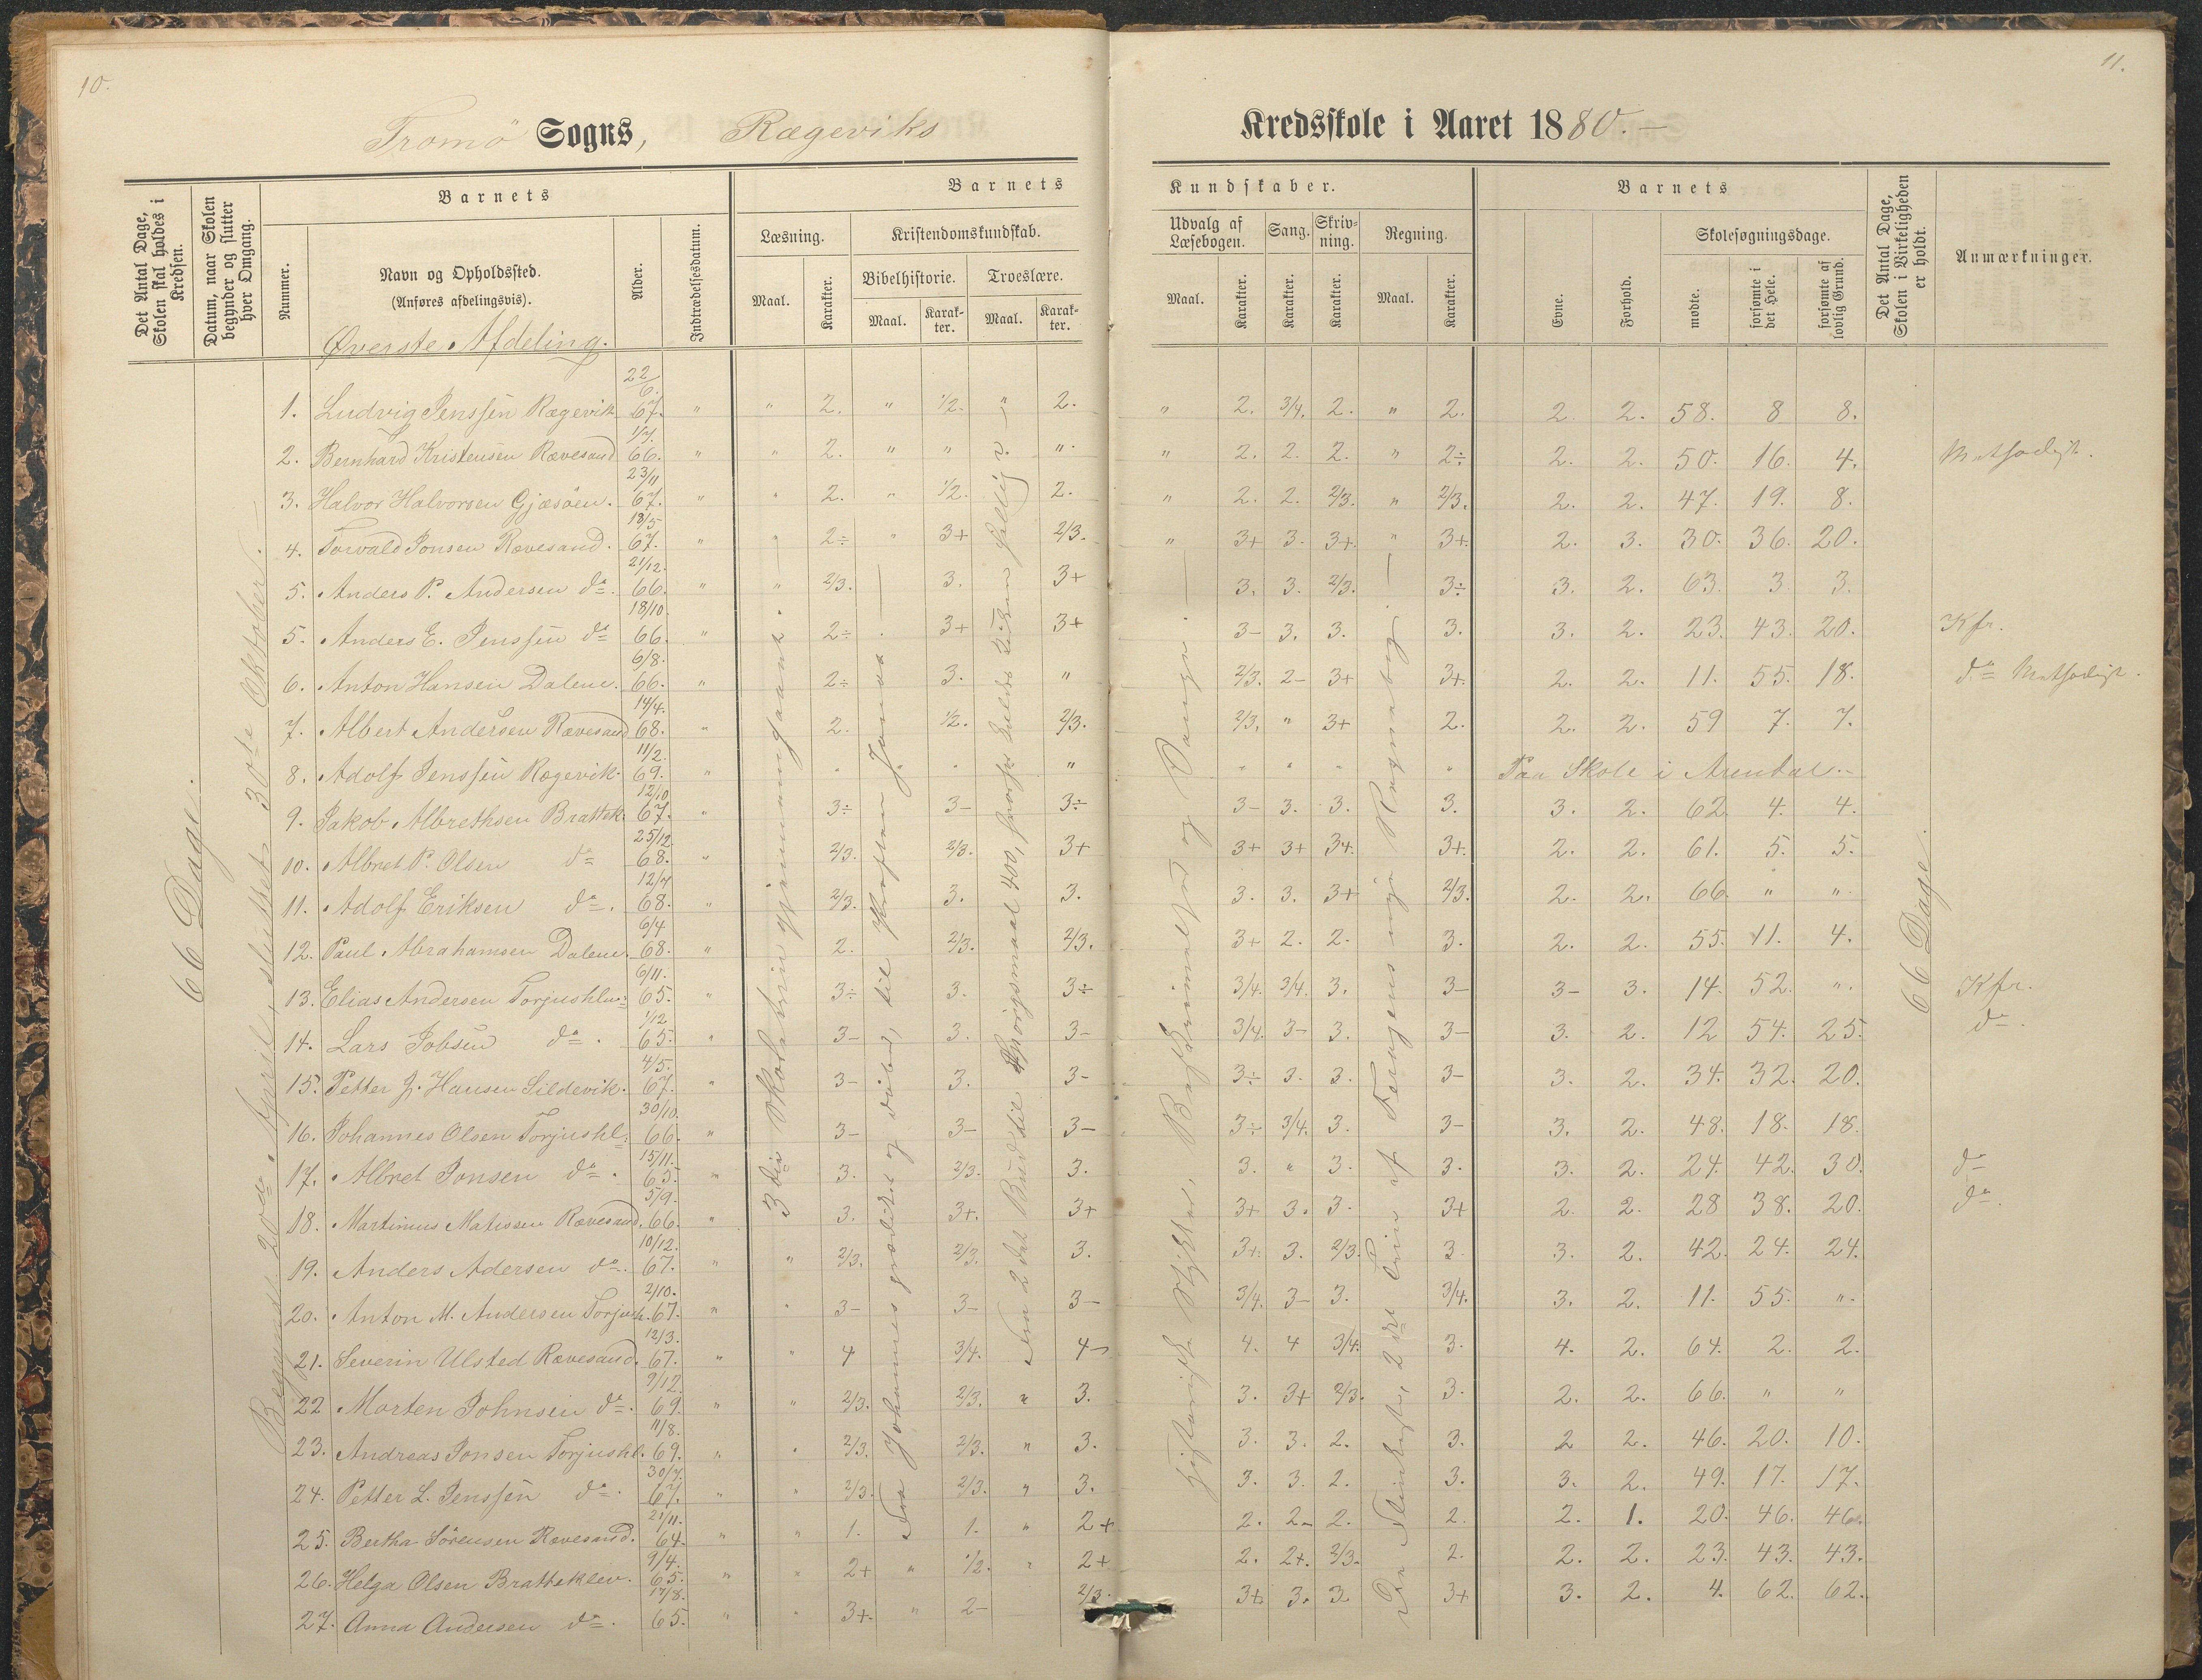 10.
Tromö Sogns, Rægeviks
Det Antal Dage, Skolen skal holdes i Kredsen.
Datum, naar Skolen begynder og slutter hver Omgang.
Barnets
Nummer.
Navn og Opholdssted.
(Anføres afdelingsvis).
Alder.
Indtrædelsesdatum.
Barnets
Læsning.
Kristendomskundskab.
Maal.
Karakter.
Bibelhistorie.
Troeslære.
Maal.
Karakter.
Maal.
Karakter.
Øverste Afdeling.
66 Dage.
Begyndt 20de April, sluttet 30te Oktober.
1. Ludvig Jenssen Rægevik 22/6. 67. " " 2. " 1/2. " 2.
2. Bernhard Kristensen Rævesand 1/7. 66. " " 2. " " ".
3. Halvor Halvorsen Gjæsöen. 23/11 67. " " 2. " 1/2. 2.
4. Torvald Jonsen Rævesand. 18/5 67. " " 2÷ " 3+ 2/3.
5. Anders P. Andersen do. 21/12. 66. " " 2/3. 3. 3+
5. Anders E. Jenssen do 18/10. 66. " 2÷ 3+ 3+
6. Anton Hansen Dalene. 6/8. 66. " 2÷ 3. "
7. Albert Andersen Rævesand 14/4. 68. " 2. 1/2. 2/3.
8. Adolf Jenssen Rægevik. 11/2. 69. " " " "
9. Jakob Albrethsen Brattek. 12/10 67. " 3÷ 3- 3÷
10. Albret P. Olsen do 25/12. 68. " 2/3. 2/3. 3+
11. Adolf Eriksen do. 12/7 68. " 2/3. 3. 3.
12. Paul Abrahamsen Dalene. 6/4 68. " 2. 2/3. 2/3.
13. Elias Andersen Torjushlm: 6/11. 65. " 3÷ 3. 3÷
14. Lars Jobsen do. 1/12 65. " 3- 3. 3-
15. Petter J. Hansen Sildevik. 4/5. 67. " 3- 3. 3-
16. Johannes Olsen Torjushl: 30/10. 66. " 3- 3- 3-
17. Albret Jonsen do. 15/11. 65. " 3. 2/3. 3.
18. Martinius Matissen Rævesand. 5/9. 66. " 3. 3+. 3+
19. Anders Adersen do. 10/12. 67. " " 2/3. 2/3. 3.
20. Anton M. Andersen Torjush. 2/10. 67. " " 3- 3- 3-
21. Severin Ulsted Rævesand. 12/3. 67. " " 4 3/4. 4-
22 Morten Johnsen do. 9/12. 69. " " 2/3. 2/3. " 3.
23. Andreas Jonsen Torjushl. 11/8. 69. " " 2/3. 2/3. " 3.
24. Petter L. Jenssen do. 30/7. 67. " " 2/3. 2/3. " 3.
25. Bertha Sörensen Rævesand. 21/11. 64. " " 1. 1. " 2+
26. Helga Olsen Bratteklev. 9/4. 65. " " 2+ " 1/2. " 2+
27. Anna Andersen do. 17/8. 65. " " 3+. " 2- 2/3.
3die Skoletrin gjennemgaaet.
Fra Johannes grædet og döbed, til Kraften Jonas
Fra 2det Bud til Spörgsmaal 400,
11.
Kredsskole i Aaret 1880.-
Kundskaber.
Udvalg af Læsebogen.
Sang.
Skrivning.
Regning.
Maal.
Karakter.
Karakter.
Karakter.
Maal.
Karakter.
Barnets
Evne.
Forhold.
Skolesøgningsdage.
mødte.
forsømte i det Hele.
forsømte af lovlig Grund.
Det Antal Dage, Skolen i Virkeligheden er holdt.
Anmærkninger.
" 2. 3/4. 2. " 2. 2. 2. 58. 8 8.
" 2. 2. 2. " 2÷ 2. 2. 50. 16. 4.
" 2. 2. 2/3. " 2/3. 2. 2. 47. 19. 8.
" 3+ 3. 3+. " 3+. 2. 3. 30. 36. 20.
3. 3. 2/3. 3÷ 3. 2. 63. 3. 3.
3- 3. 3. 3. 3. 2. 23. 43. 20. Kfr.
2/3. 2- 3+ 3+. 2. 2. 11. 55. 18. do
2/3. " 3+ 2. 2. 2. 59 7. 7.
" " " " Paa Skole i Arendal.-
3- 3. 3. 3. 3. 2. 62. 4. 4.
3+ 3+ 3+. 3+. 2. 2. 61. 5. 5.
3. 3. 3+ 2/3. 2. 2. 66. " ".
3+ 2. 2. 3. 2. 2. 55. 11. 4.
3/4. 3/4. 3. 3- 3- 3. 14. 52. ". Kfr.
3/4. 3- 3. 3- 3. 2. 12 54. 25. do.
3÷ 3. 3. 3- 3. 2. 34. 32. 20.
3÷ 3/4. 3. 3- 3. 2. 48. 18. 18.
3. " 3. 3. 3. 2. 24. 42. 30. do
3+ 3. 3. 3+ 2. 2. 28 38. 20. do.
3+. 3. 2/3. 3. 3. 2. 42. 24. 24.
3/4. 3- 3. 3/4. 3. 2. 11. 55. ".
4. 4 3/4. 3. 4. 2. 64. 2. 2.
3. 3+ 2/3. 3. 2. 2. 66. " "
3. 3. 2. 3. 2 2. 46. 20. 10.
3. 3. 2. 3. 3. 2. 49. 17. 17.
2. 2- 2. 2. 2. 1. 20. 46. 46.
2. 2+. 2/3. 2. 2. 2. 23. 43. 43.
3+. 3. 3. 3+ 3. 2. 4. 62. 62.
historiske Stykker,
De Flinkeste, 2det Trin af Fongens nye Regnebog.
66 Dage.